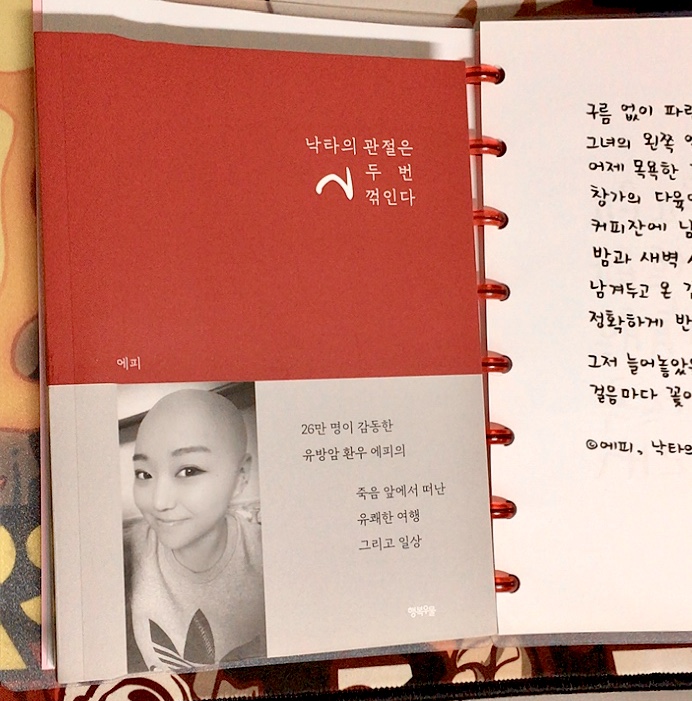 낙타의 관절은
두 번
꺾인다
에피
26만 명이 감동한
유방암 환우 에피의
죽음 앞에서 떠난
유쾌한 여행
그리고 일상
행복우물
구름 없이 파
그녀의 왼쪽
어제 목욕한
창가의 다육
커피잔에 남
밤과 새벽
남겨두고 온
정확하게 반
그저 늘어놓았
걸음마다 꽃이
©에피, 낙타의